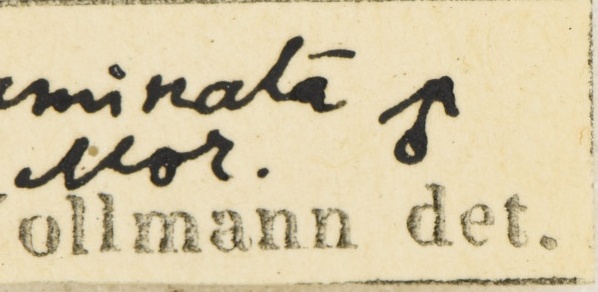 uminata ♂
Mor.
Vollmann det.